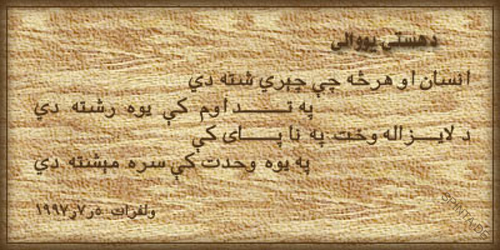 د هستۍ يووالی
انسان او هرڅه چې چېرې شته دي
په تــــداوم کې يوه رشته دي
د لايــزاله وخت په ناپــای کې
په يوه وحدت کې سره مېشته دي
ولفرات ۵ر۷ر۱۹۹۷